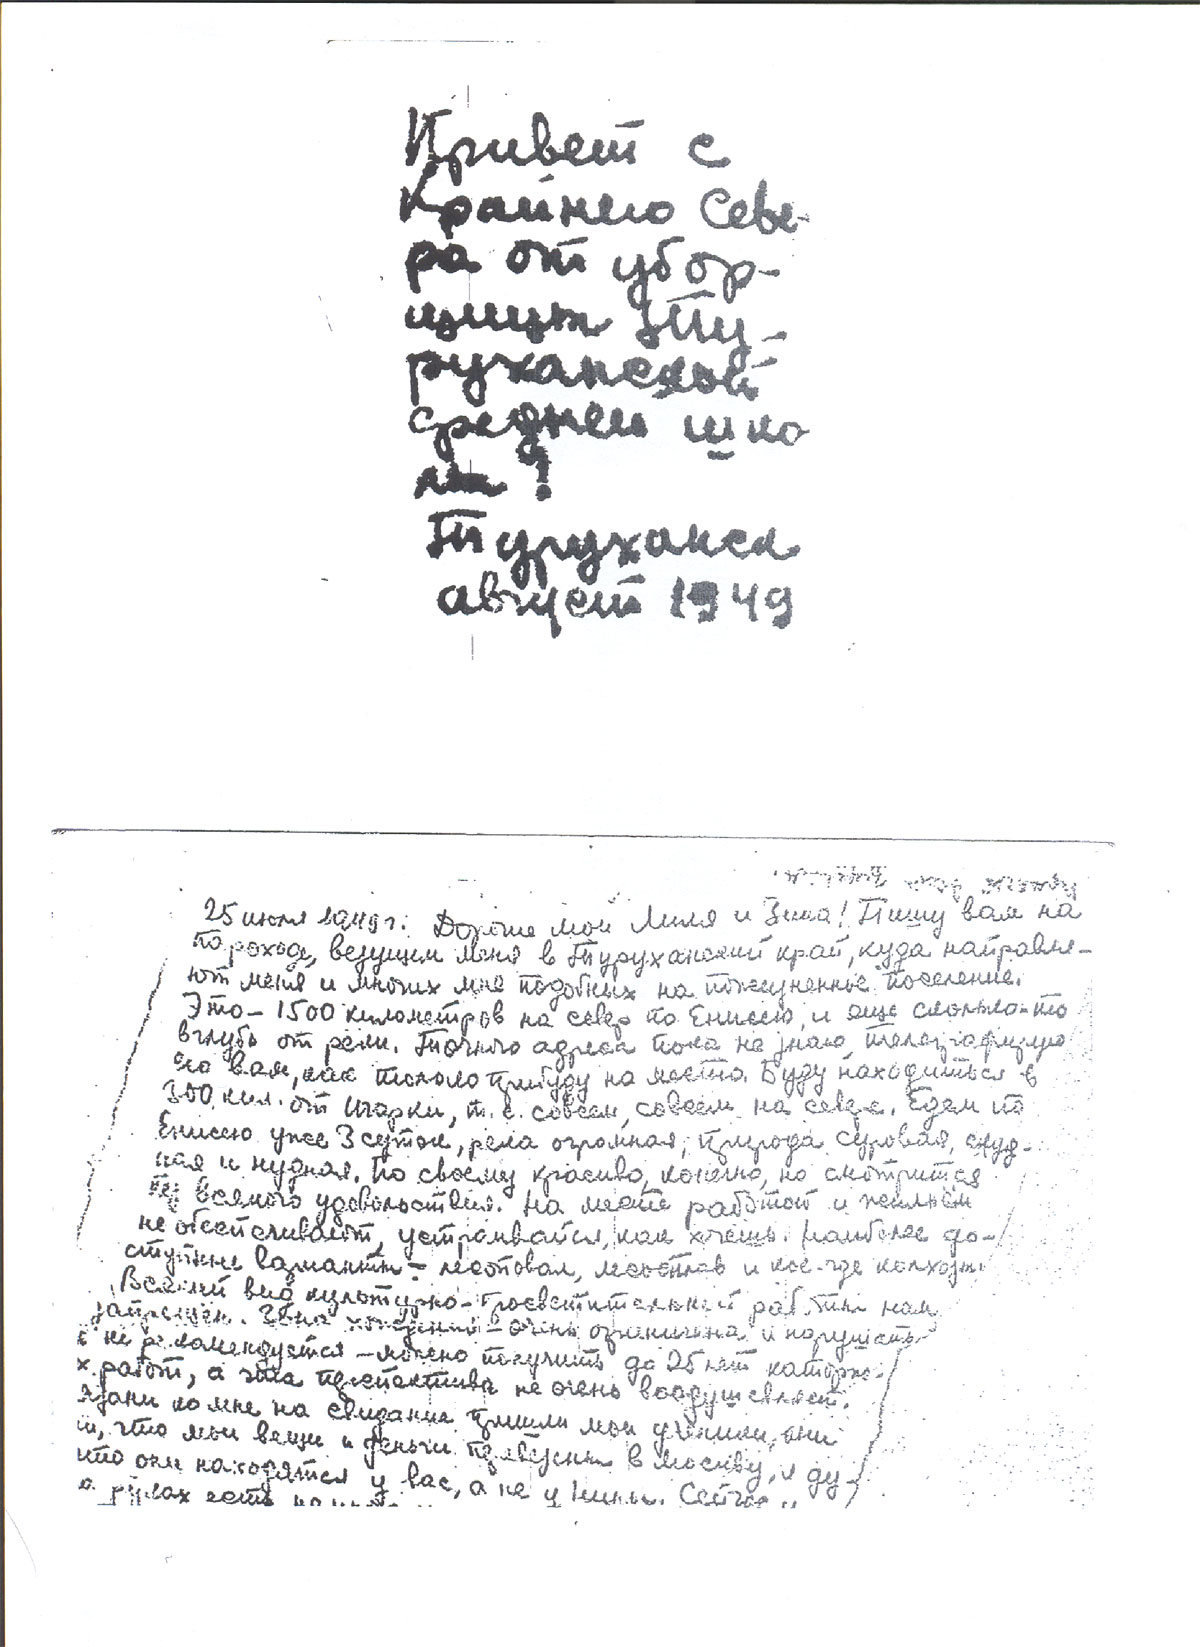 Привет с
Крайнего Севе-
ра от убор-
щицы Ту-
руханской
средней шко
лы!
Туруханск
август 1949
25 июля 1949 г. Дорогие мои Лиля и Зина! Пишу вам на
пароходе, везущем меня в Туруханский край, куда направля-
ют меня и многих мне подобных на пожизненное поселение.
Это – 1500 километров на север по Енисею, и еще сколько-то
вглубь от реки. Точного адреса пока не знаю, телеграфирую
его вам, как только прибуду на место. Буду находиться в
300 кил. от Игарки, т. е. совсем, совсем на севере. Едем по
Енисею уже 3 суток, река огромная, природа суровая, скуд-
ная и нудная. По своему красиво, конечно, но смотрится
без всякого удовольствия. На месте работой и жильём
не обеспечивают, устраивайся, как хочешь. Наиболее до-
ступные варианты – лесоповал, лесосплав и кое-где колхозы.
Всякий вид культурно-просветительной работы нам
запрещен. Зона хождений – очень ограничена и нарушать
не рекомендуется – можно получить до 25 лет каторжн.
х работ, а эта перспектива не очень воодушевляет.
язани ко мне на свидание пришли мои ученики, они
и, что мои вещи и деньги переведены в Москву, я ду-
что они находятся у вас, а не у Нины. Сейчас
руках есть